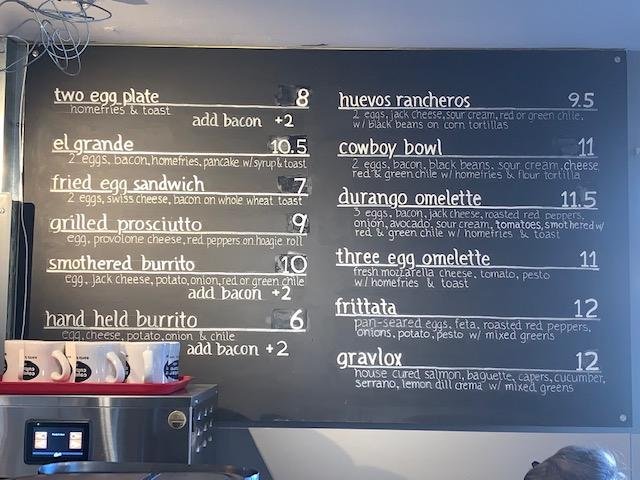 two egg plate 8
homefries & toast
add bacon +2
el grande 10.5
2 eggs, bacon, homefries, pancake w/ syrup & toast
fried egg sandwich 7
2 eggs, swiss cheese, bacon on whole wheat toast
grilled prosciutto 9
egg, provolone cheese, red peppers on hoagie roll
smothered burrito 10
egg, jack cheese, potato, onion, red or green chile
add bacon +2
hand held burrito 6
egg, cheese, potato, onion & chile
add bacon +2
huevos rancheros 9.5
2 eggs, jack cheese, sour cream, red or green chile,
w/ black beans on corn tortillas
cowboy bowl 11
2 eggs, bacon, black beans, sour cream, cheese
red & green chile w/ homefries & flour tortilla
durango omelette 11.5
3 eggs, bacon, jack cheese, roasted red peppers,
onion, avocado, sour cream, tomatoes, smothered w/
red & green chile w/ homefries & toast
three egg omelette 11
fresh mozzarella cheese, tomato, pesto
w/ homefries & toast
frittata 12
pan-seared eggs, feta, roasted red peppers,
onions, potato, pesto w/ mixed greens
gravlox 12
house cured salmon, baguette, capers, cucumber,
serrano, lemon dill crema w/ mixed greens